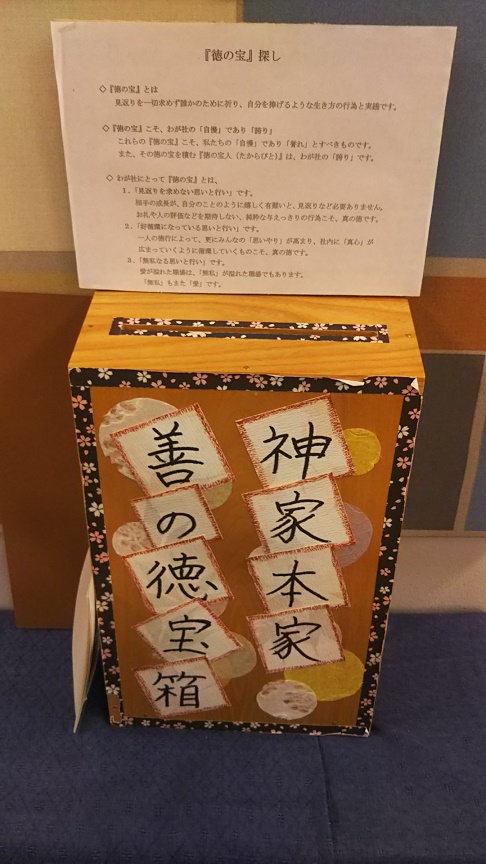 『徳の宝』探し
◇『徳の宝』とは
見返りを一切求めず誰かのために祈り、自分を捧げるような生き方の行為と実践です。
◇『徳の宝』こそ、わが社の「自慢」であり「誇り」
これらの『徳の宝』こそ、私たちの「自慢」であり「誉れ」とすべきものです。
また、その徳の宝を積む『徳の宝人（たからびと）』は、わが社の「誇り」です。
◇ わが社にとって『徳の宝』とは、
1．「見返りを求めない思いと行い」です。
相手の成長が、自分のことのように嬉しく有難いと、見返りなど必要ありません。
お礼や人の評価などを期待しない、純粋な与えっきりの行為こそ、真の徳です。
2．「好循環になっている思いと行い」です。
一人の徳行によって、更にみんなの「思いやり」が高まり、社内に「真心」が
広まっていくように循環していくものこそ、真の徳です。
3．「無私なる思いと行い」です。
愛が溢れた職場は、「無私」が溢れた職場でもあります。
「無私」もまた「愛」です。
神家本家
善の徳宝箱